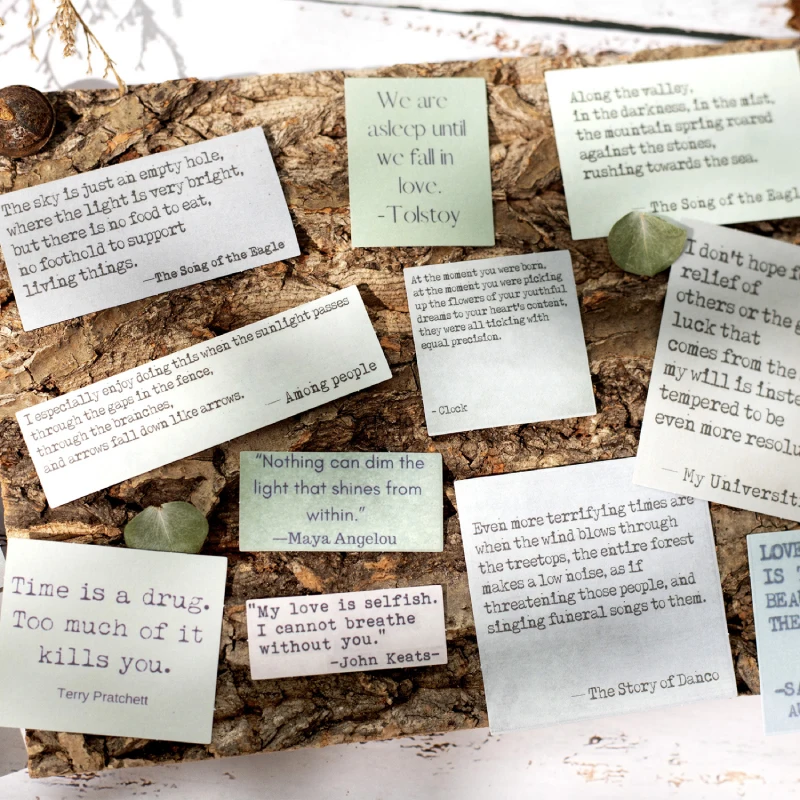 We are
asleep until
we fall in
love.
-Tolstoy
Along the valley,
in the darkness, in the mist,
the mountain spring roared
against the stones,
rushing towards the sea.
— The Song of the Eagl
The sky is just an empty hole,
where the light is very bright,
but there is no food to eat,
no foothold to support
living things.
—The Song of the Eagle
At the moment you were born,
at the moment you were picking
up the flowers of your youthful
dreams to your heart's content,
they were all ticking with
equal precision.
- Clock
I don't hope f
relief of
others or the g
luck that
comes from the
my will is inste
tempered to be
even more resolu
— My Universiti
I especially enjoy doing this when the sunlight passes
through the gaps in the fence,
through the branches,
and arrows fall down like arrows.
— Among people
"Nothing can dim the
light that shines from
within."
—Maya Angelou
Even more terrifying times are
when the wind blows through
the treetops, the entire forest
makes a low noise, as if
threatening those people, and
singing funeral songs to them.
— The Story of Danco
Time is a drug.
Too much of it
kills you.
Terry Pratchett
"My love is selfish.
I cannot breathe
without you."
-John Keats-
LOVE
IS
BEA
THE
-SA